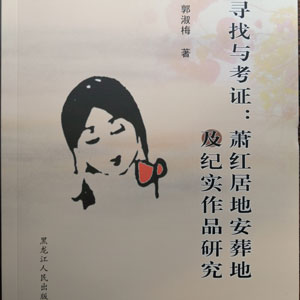 寻找与考证：萧红居地安葬地
及纪实作品研究
郭淑梅 著
黑龙江人民出版